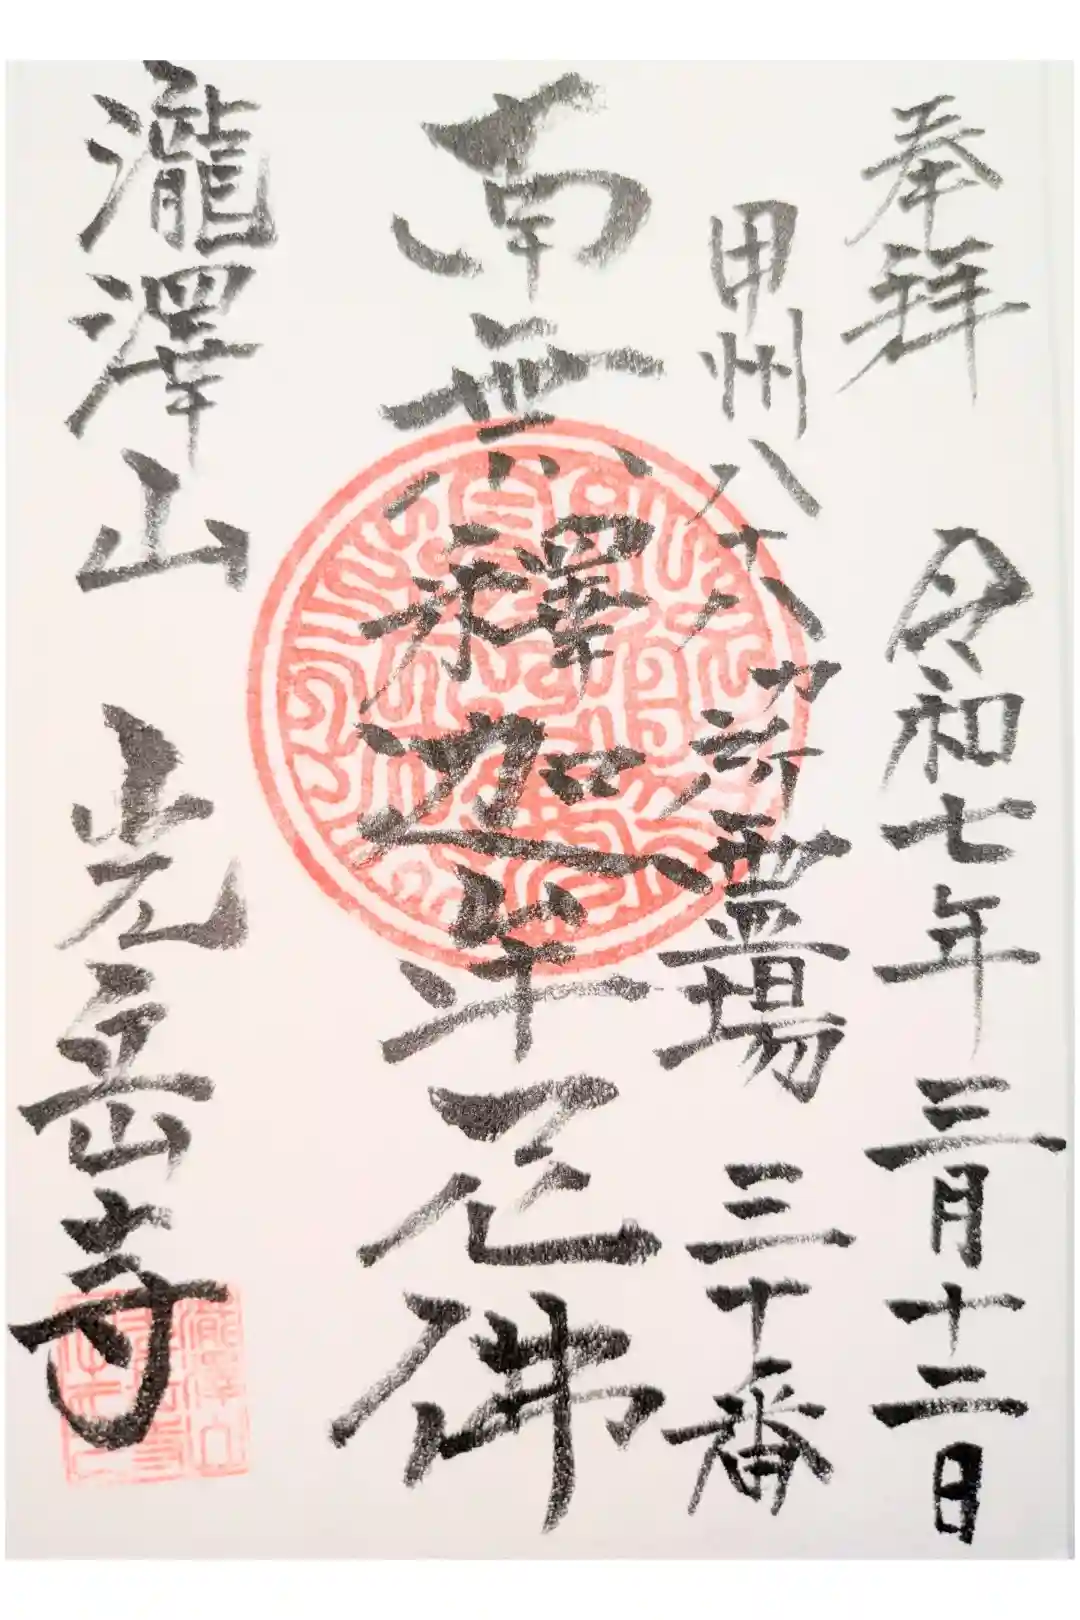 奉拜
令和七年三月十二日
甲州八十八ヶ所霊場
三十番
南無釋迦牟尼佛
瀧澤山
光岳寺